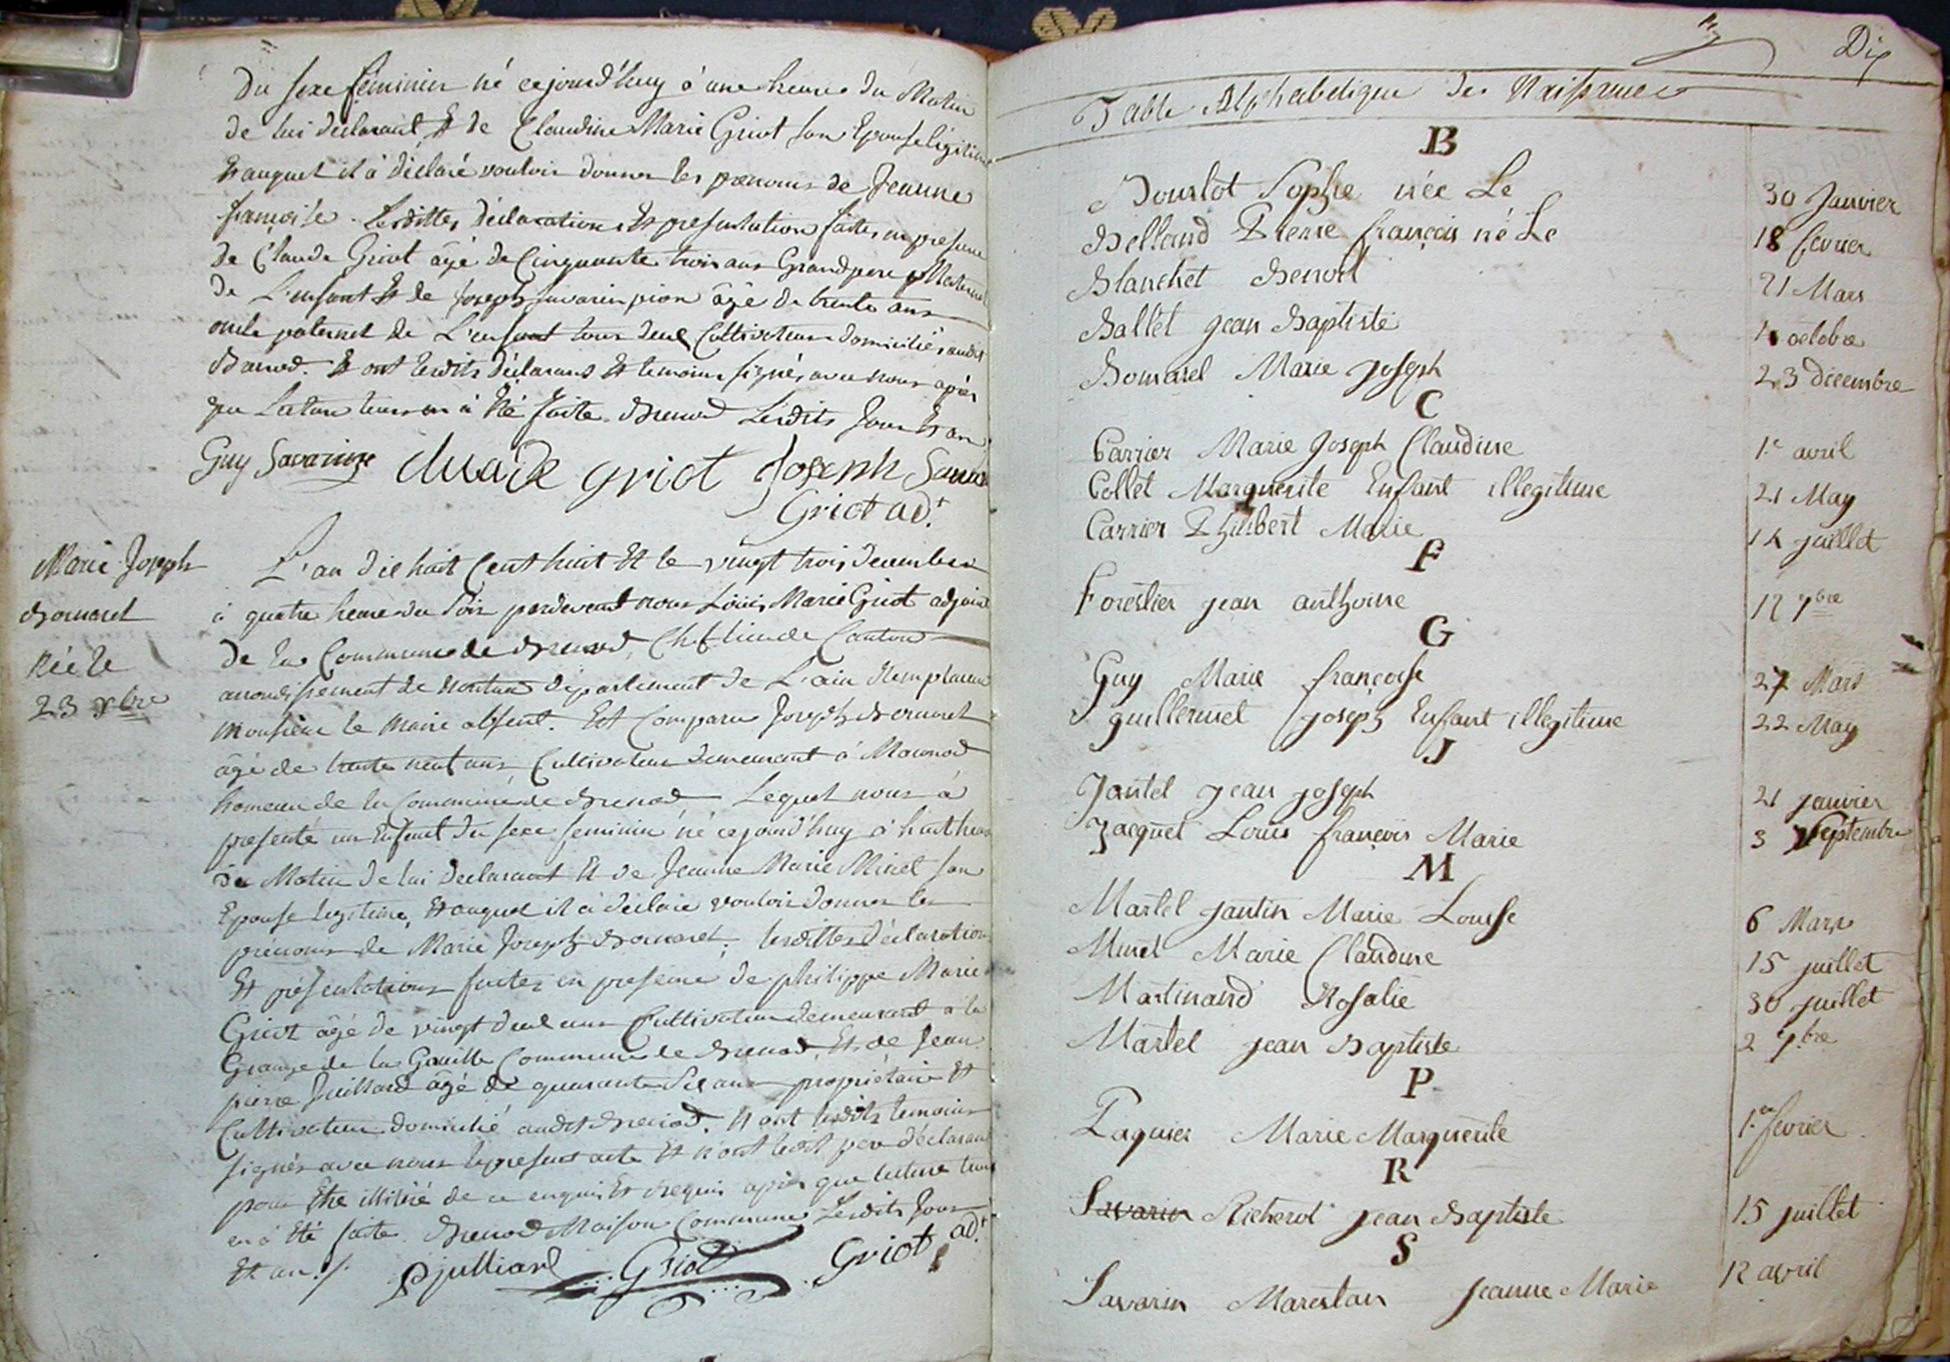 du sexe féminin né cejourd'huy à une heure du Matin
de lui déclarant Et de Claudine Marie Griot son Epouse légitime
Et auquel il à déclaré vouloir donner les prenoms de Jeanne
françoise. Lesdittes déclaration Et presentation faites en presence
de Claude Griot âgé de Cinquante trois ans Grandpere Maternel
de L'enfant Et de Joseph Savarin pion âgé de trente ans
oncle paternel de L'enfant tous deux Cultivateurs domiciliés audit
Brenod. Et ont lesdits déclarans Et temoins signés avec nous après
que Lecture leur en à été faite. Brenod Lesdits Jour Et an
Guy Savarin Claude griot Joseph Savarin
Griot ad.t
Marie Joseph
Bomaret
Née le
23 xbre
L'an dix huit Cent huit Et le vingt trois decembre
à quatre heures du Soir pardevant nous Louis Marie Griot adjoint
de la Commune de Brenod, Chef lieu de Canton
arrondissement de Nantua département de L'ain Remplacant
Monsieur le Maire absent. Est Comparu Joseph Bomaret
âgé de trente neuf ans, Cultivateur demeurant à
hameau de la Commune de Brenod Lequel nous à
presenté un Enfant du sexe feminin né cejourd'huy à huit heures
du Matin de lui déclarant Et de Jeanne Marie Minet son
Epouse légitime, Et auquel il à déclaré vouloir donner les
prénoms de Marie Joseph Bomaret, lesdittes déclaration
Et présentations faites en presence de philippe Marie
Griot âgé de vingt deux ans Cultivateur demeurant à la
Grange de la Gouille Commune de Brenod, Et de Jean
pierre Juillard âgé de quarante Six ans propriétaire Et
Cultivateur domicilié audit Brenod. Et ont lesdits temoins
signés avec nous le present acte Et non ledit pere déclarant
pour être illitéré de ce enquis Et requis après que lecture leur
en à été faite. Brenod Maison Commune Lesdits Jour
Et an ./.
Pjulliard Griot Griot ad.t
Dix
Table Alphabetique des Naissances
B
Bourlot Sophie née Le 30 Janvier
Belland Pierre françois né Le 18 fevrier
Blanchet Benoit 21 Mars
Ballet jean Baptiste 4 octobre
Bomarel Marie joseph 23 décembre
C
Carrier Marie Joseph Claudine 1.er avril
Collet Marguerite Enfant illegitime 21 May
Carrier Philibert Marie 14 juillet
F
Forestier jean anthoine 12 7bre
G
Guy Marie françoise 27 Mars
guillermet joseph Enfant illegitime 22 May
J
Jantel jean joseph 21 janvier
Jacquet Louis françois Marie 3 Septembre
M
Martel jantin Marie Louise 6 Mars
Minet Marie Claudine 15 juillet
Martinand Rosalie 30 juillet
Martel jean Baptiste 2 7bre
P
Paquier Marie Marguerite 1.er fevrier
R
Savarin Richerot jean Baptiste 15 juillet
S
Savarin Marestan jeanne Marie 12 avril